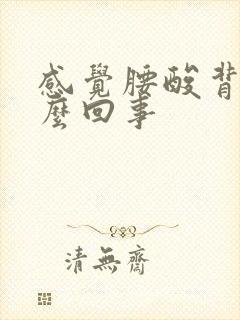 感覺腰酸背
麼回事
清無齋